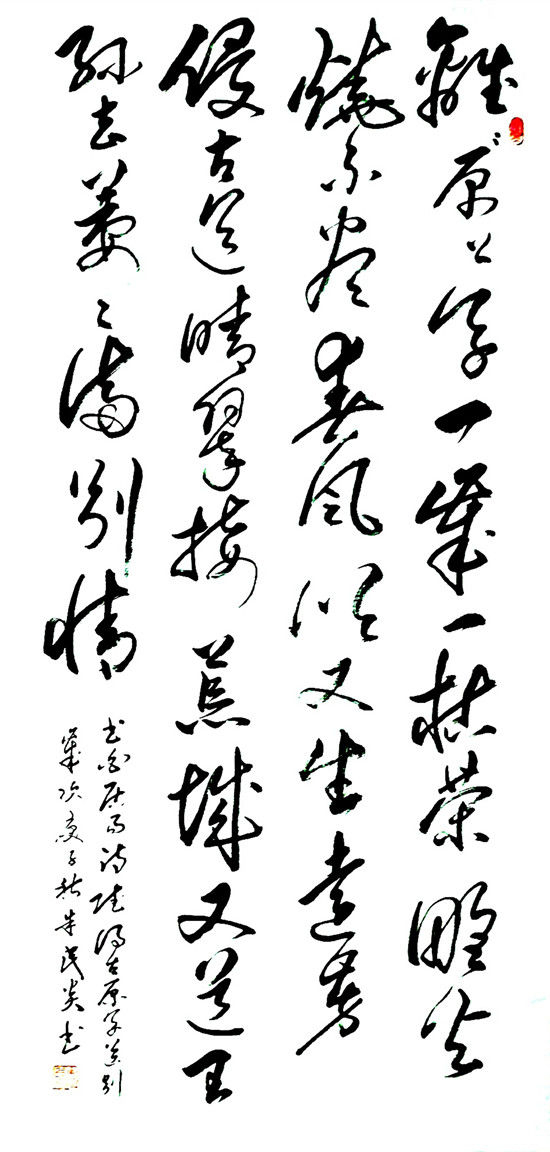 離々原上草一歲一枯荣野火
燒不盡春風吹又生遠芳
侵古道晴翠接荒城又送王
孫去萋々滿别情
书白居易诗赋得古原草送别
歲次庚子秋朱民炎书